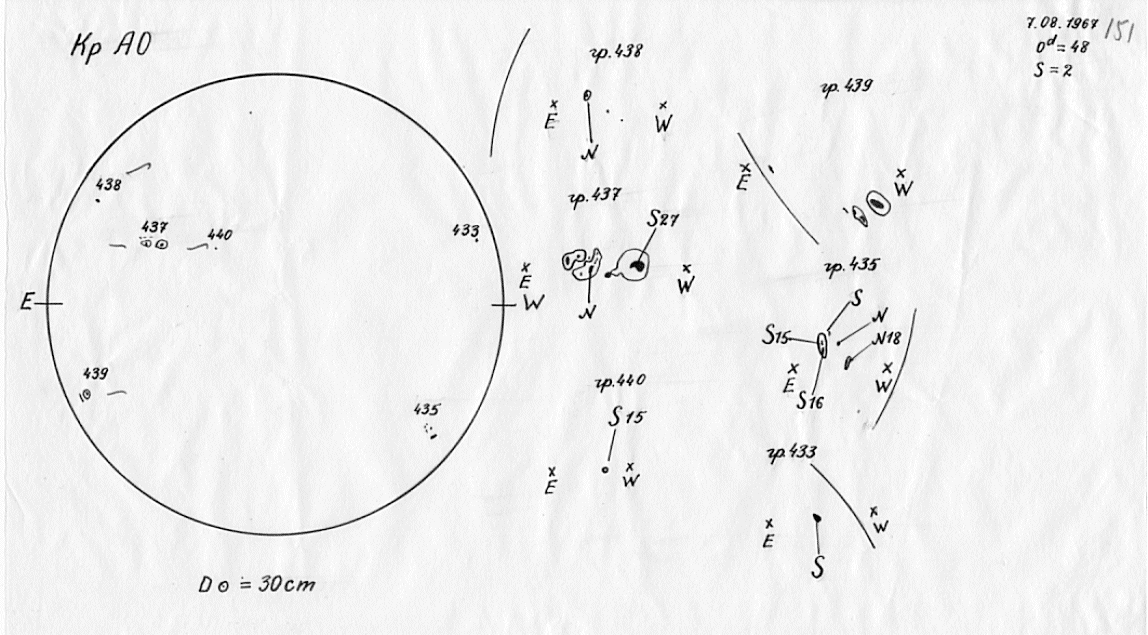 Кр АО
7.08.1967
151
0ᵈ = 48
S = 2
438
437
440
433
E
W
439
435
D⊙ = 30cm
гр.438
x E
x W
N
гр.437
S27
x E
x W
N
гр.440
S15
x E
x W
гр.439
x E
x W
гр.435
S
N
S15
N18
x E
x W
S16
гр.433
x E
x W
S